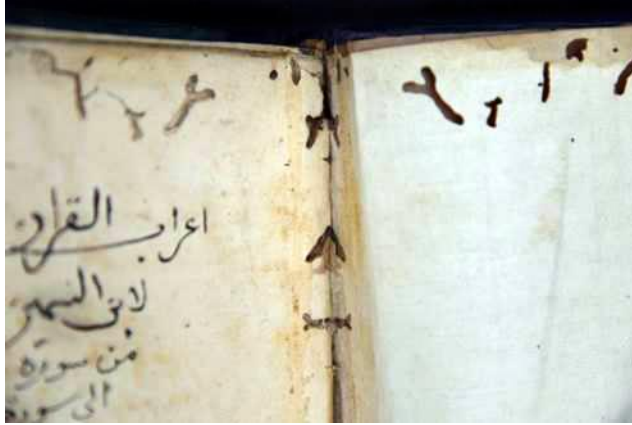 اعراب القران
لابن السمين
من سورة
الى سورة